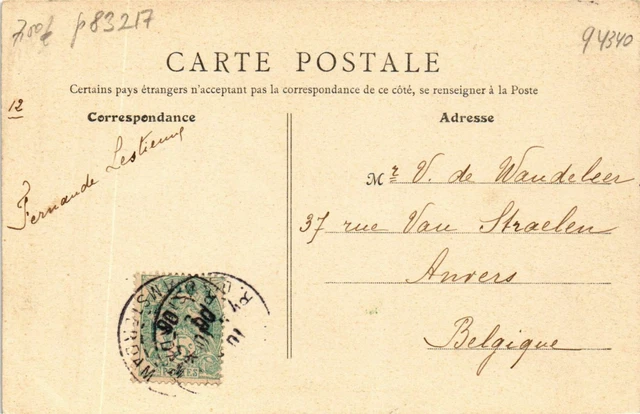 7,00f p83217
94340
CARTE POSTALE
Certains pays étrangers n'acceptant pas la correspondance de ce côté, se renseigner à la Poste
12
Correspondance
Fernande Lestienne
Adresse
Mr V. de Wandeleer
37 rue Van Straelen
Anvers
Belgique